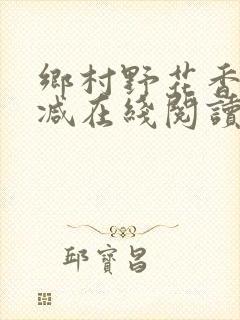 鄉村野花香
减在綫閱讀
邱寶昌